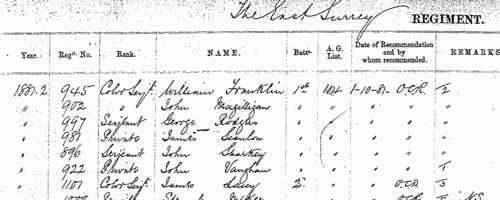 The East Surrey REGIMENT.
Year. Regtl. No. Rank. NAME. Battn. A. G. List. Date of Recommendation and by whom recommended. REMARKS
1881-2 945 Color Serjt. William Franklin 1st 104 1-10-81 O.C.R. 2
" 902 " John Magilligan " " " " "
" 997 Serjeant George Rodgers " " " " "
" 987 Private James Scanlon " " " "
" 896 Serjeant John Sharkey " " " " "
" 922 Private John Vaughan " " " "
" 1101 Color Serjt. James Lacey 2 " " O.C.R.